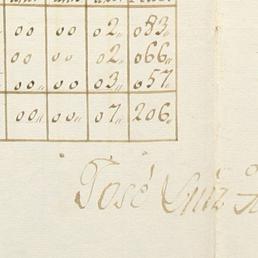 00 00 02,, 083,,
00 00 02,, 066,,
00,, 00 03,, 057
00,, 00,, 07,, 206,,
José Luiz